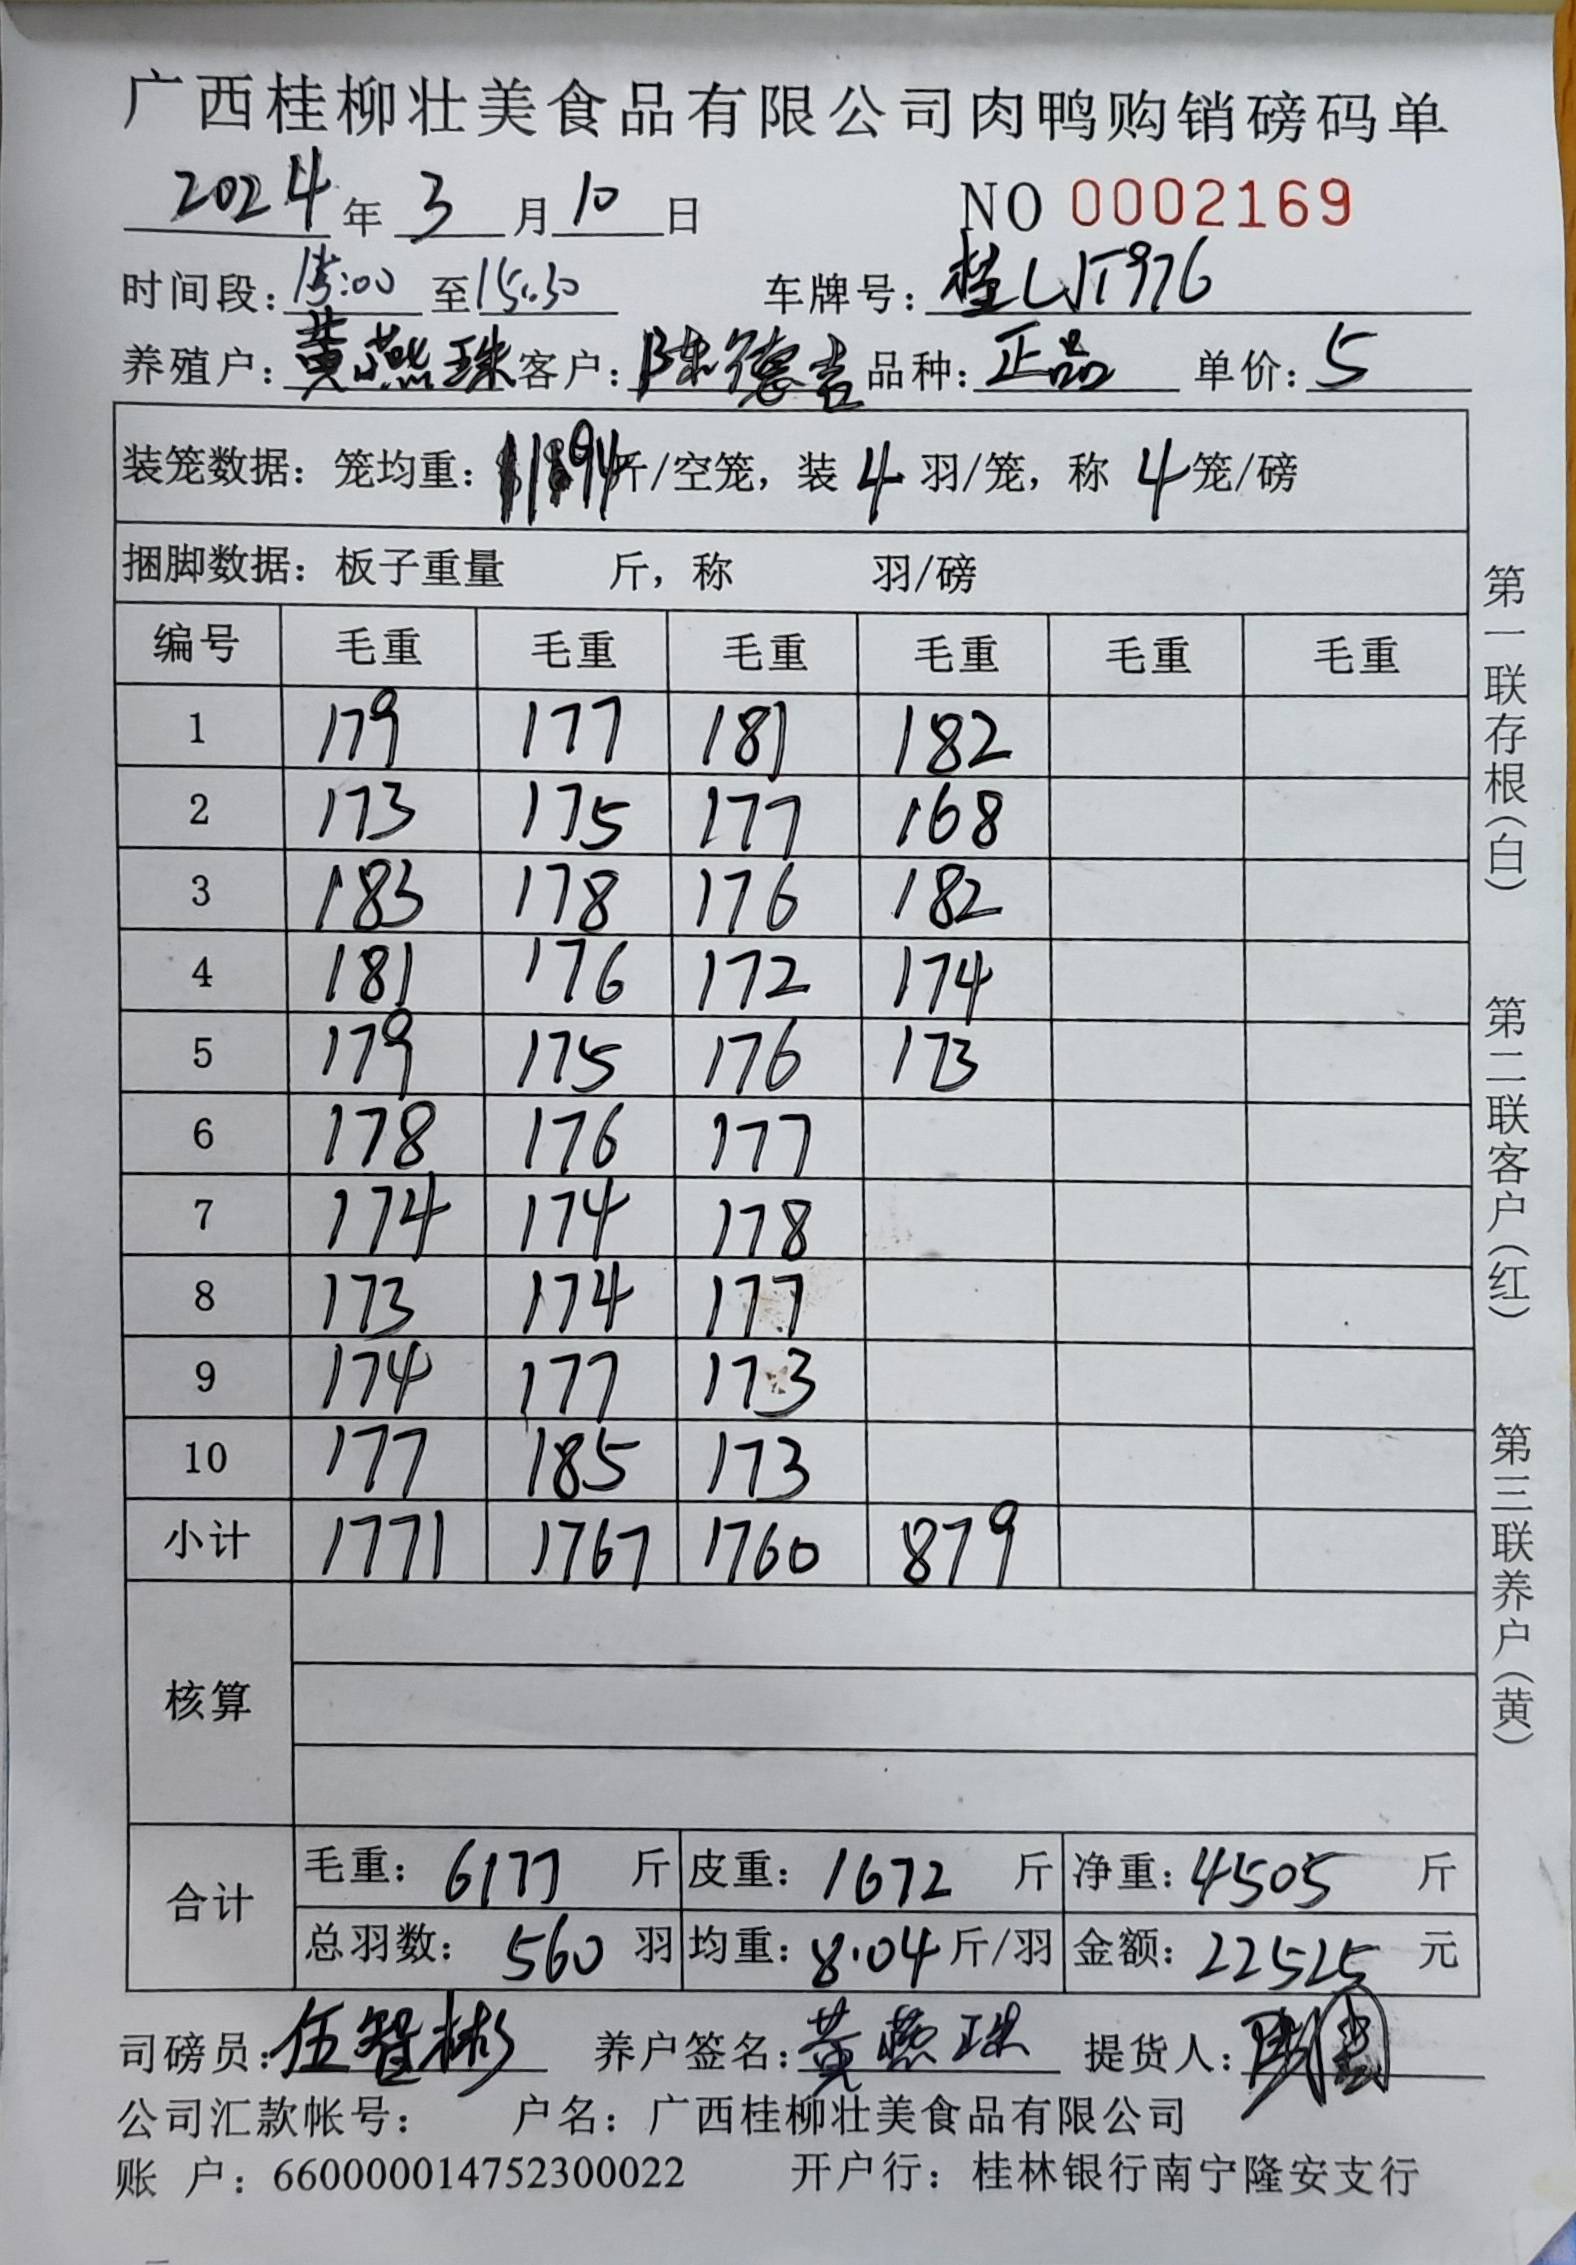 广西桂柳壮美食品有限公司肉鸭购销磅码单
2024年 3 月 10 日 NO 0002169
时间段: 15:00 至 15:30 车牌号: 桂LJT976
养殖户: 黄燕珠 客户: 陈德吉 品种: 正品 单价: 5
装笼数据: 笼均重: 斤/空笼, 装 4 羽/笼, 称 4 笼/磅
捆脚数据: 板子重量 斤, 称 羽/磅
编号 毛重 毛重 毛重 毛重 毛重 毛重
1 179 177 181 182
2 173 175 177 168
3 183 178 176 182
4 181 176 172 174
5 179 175 176 173
6 178 176 177
7 174 174 178
8 173 174 177
9 174 177 173
10 177 185 173
小计 1771 1767 1760 879
核算
合计
毛重: 6177 斤 皮重: 1672 斤 净重: 4505 斤
总羽数: 560 羽 均重: 8.04 斤/羽 金额: 22525 元
司磅员: 伍智彬 养户签名: 黄燕珠 提货人:
公司汇款帐号: 户名: 广西桂柳壮美食品有限公司
账 户: 660000014752300022 开户行: 桂林银行南宁隆安支行
第一联存根(白)
第二联客户(红)
第三联养户(黄)